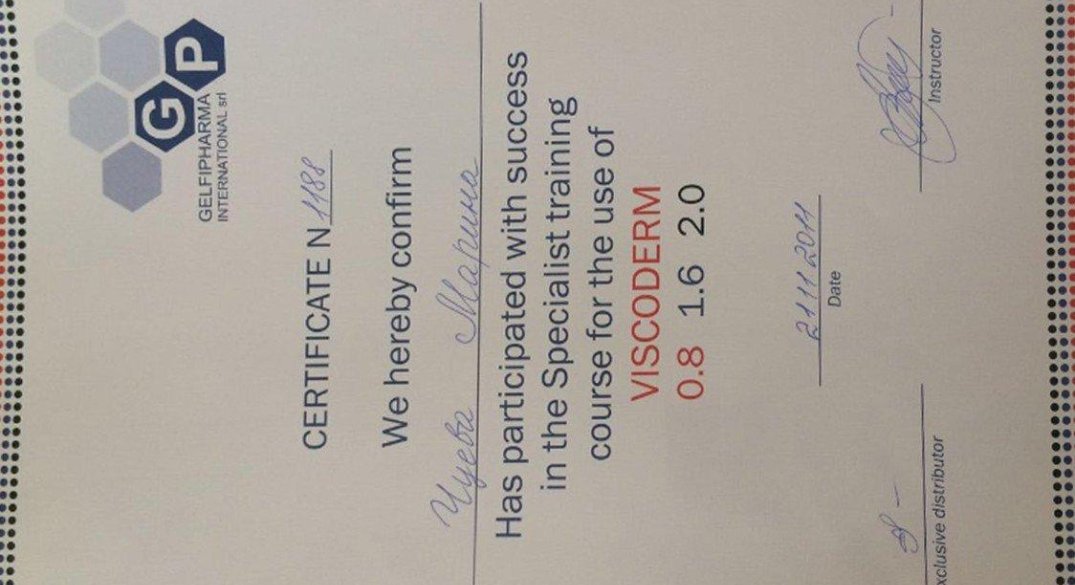 GP
GELFIPHARMA
INTERNATIONAL srl
CERTIFICATE N 1188
We hereby confirm
Чуева Марина
Has participated with success
in the Specialist training
course for the use of
VISCODERM
0.8 1.6 2.0
21 11 2011
Date
xclusive distributor
Instructor